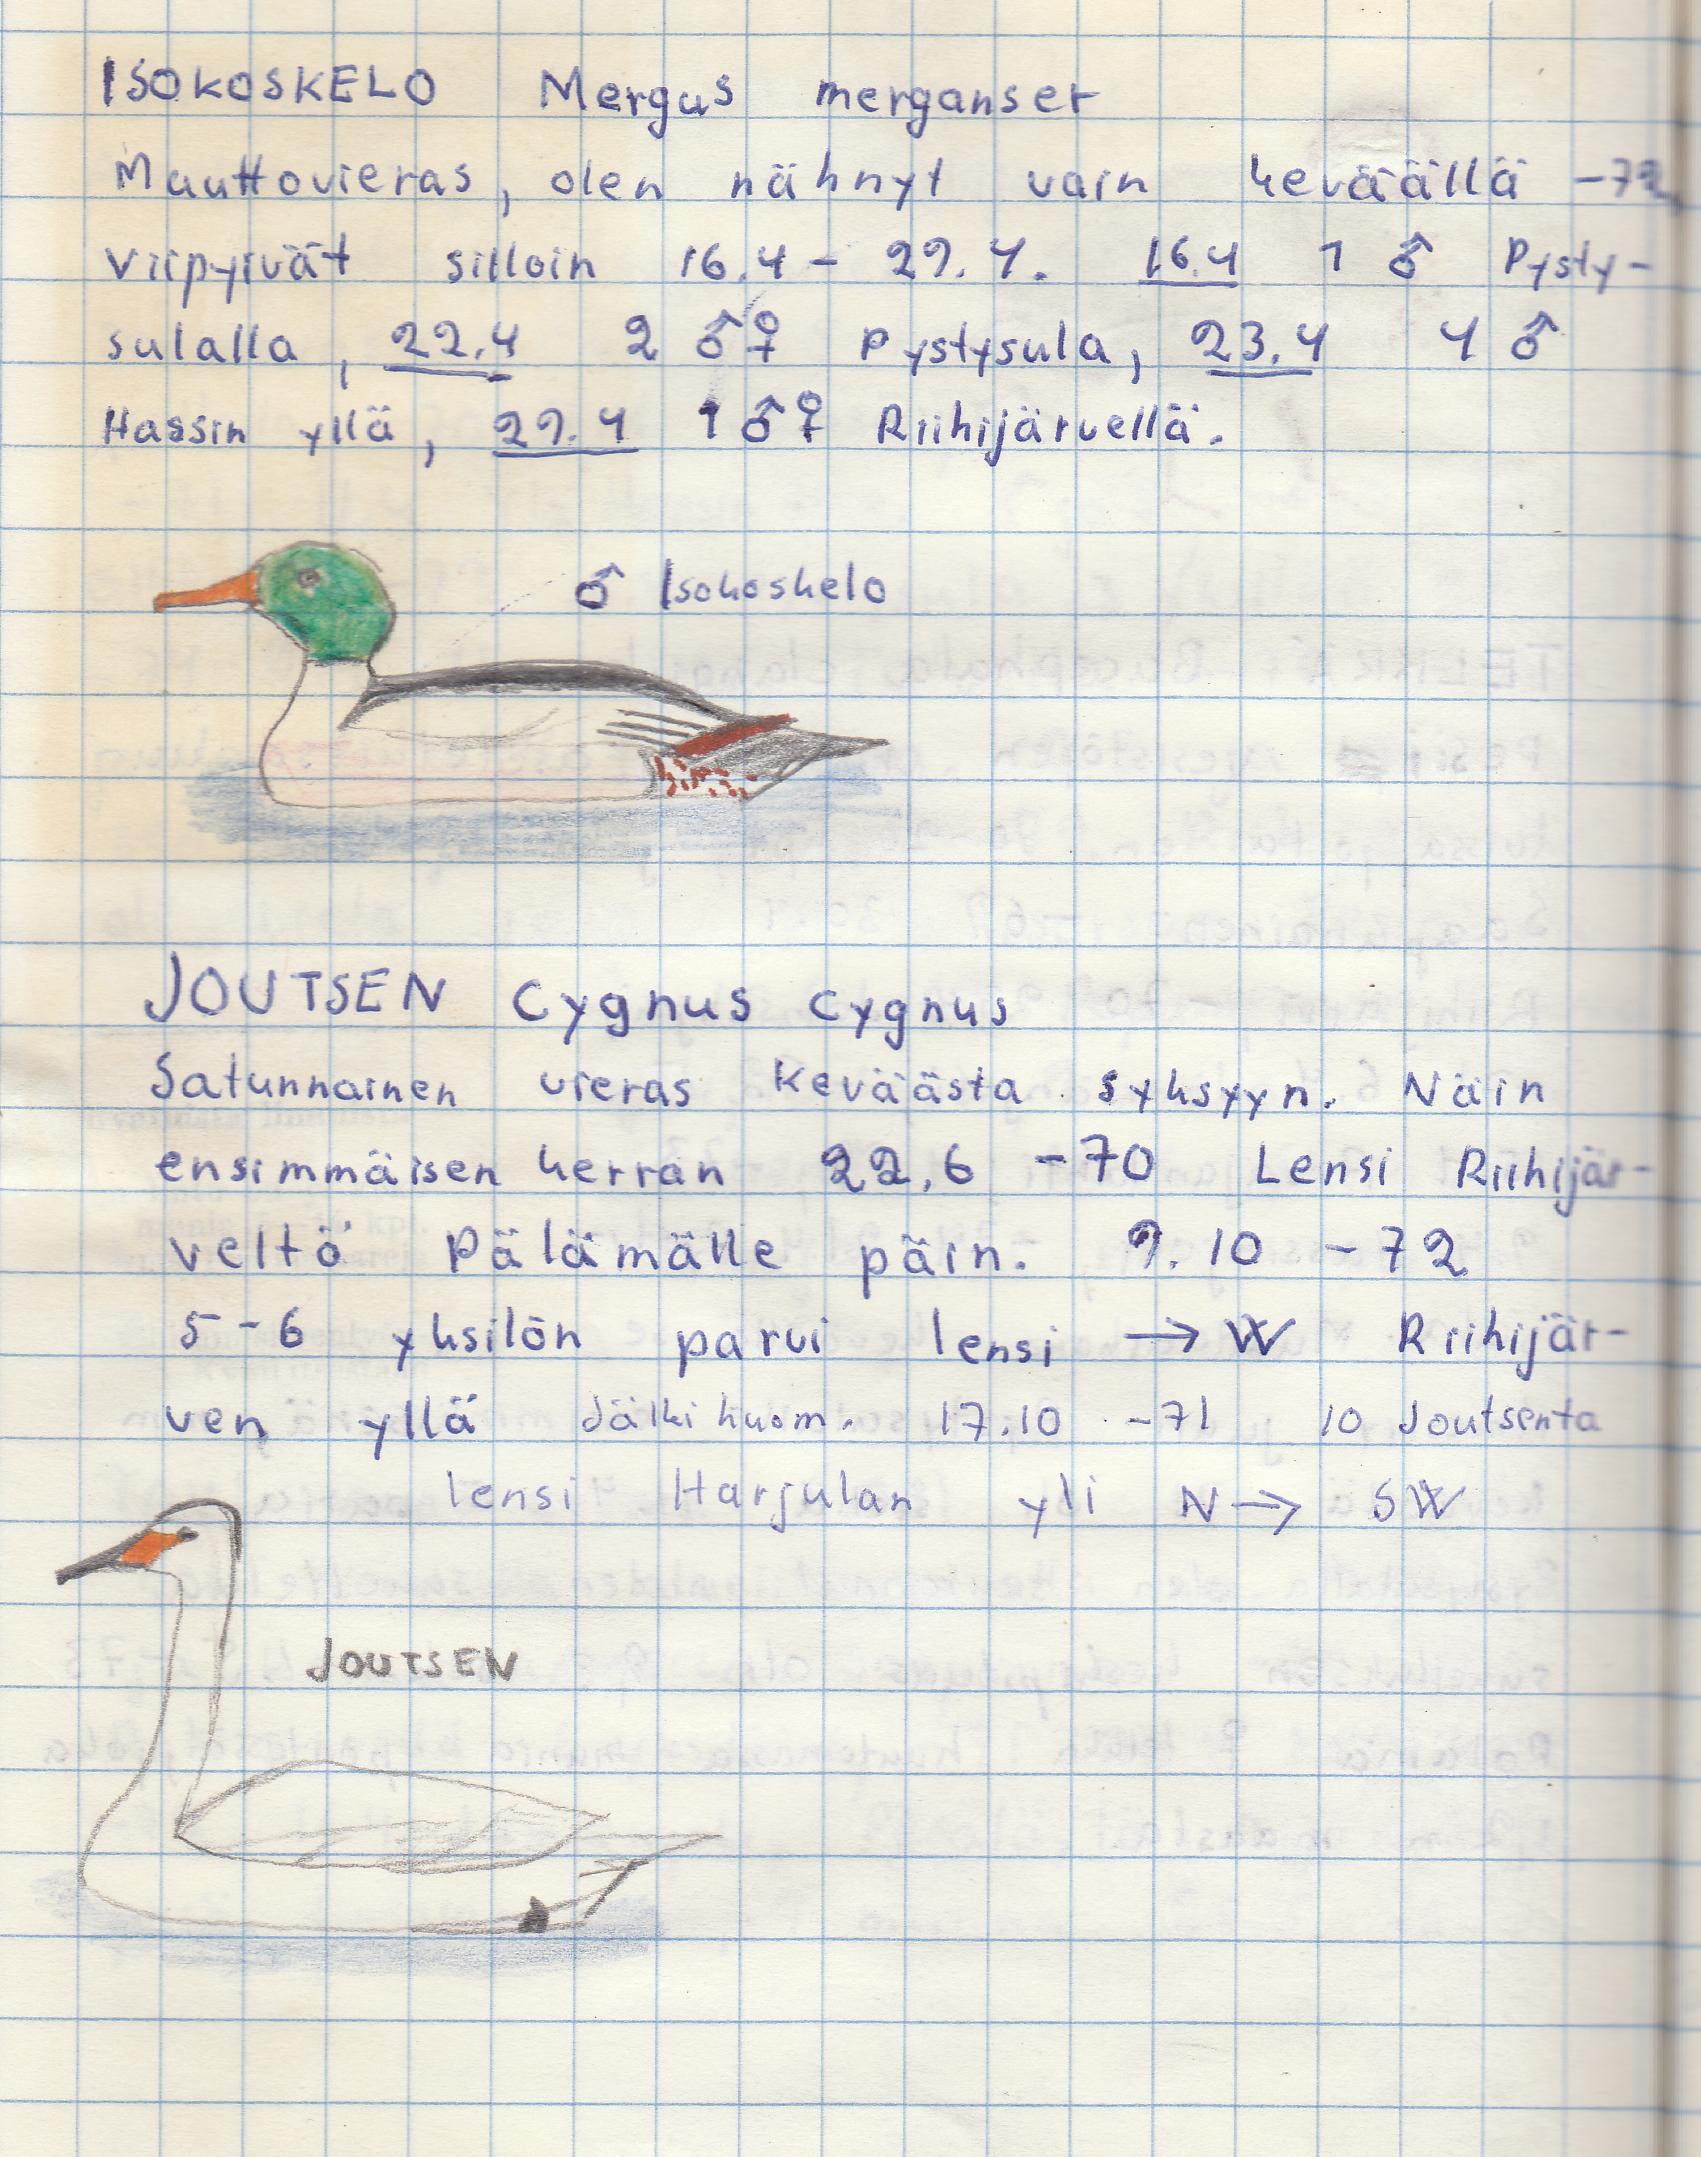 ISOKOSKELO Mergus merganser
Muuttovieras, olen nähnyt vain keväällä -72,
viipyivät silloin 16.4 - 29.4. 16.4 1 ♂ Pysty-
sulalla, 22.4 2 ♂♀ Pystysula, 23.4 4 ♂
Hassin yllä, 29.4 1 ♂♀ Riihijärvellä.
♂ Isokoskelo
JOUTSEN Cygnus cygnus
Satunnainen vieras keväästä syksyyn. Näin
ensimmäisen kerran 22.6 -70 Lensi Riihijär-
veltö Pälämälle päin. 9.10 -72
5-6 yksilön parvi lensi → W Riihijär-
ven yllä Jälkihuom. 17.10 -71 10 Joutsenta
lensi Harjulan yli N → SW
JOUTSEN